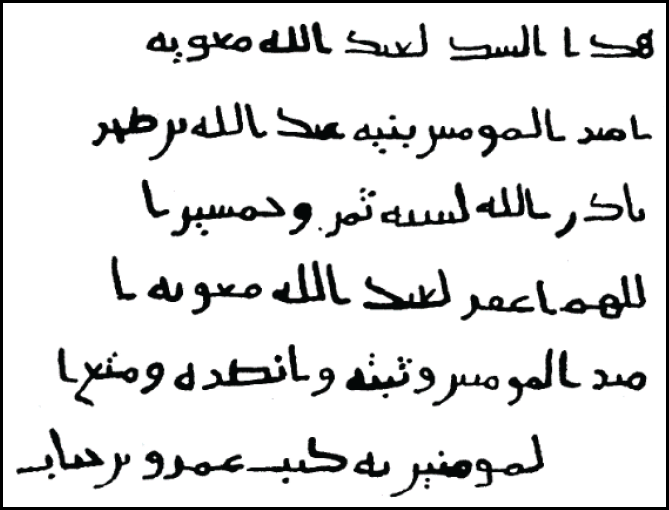 هذا السد لعبد الله معويه
امير المومنين بنيه عبد الله بن صخر
باذن الله لسنه ثمن وخمسين ا
للهم اغفر لعبد الله معويه ا
مير المومنين وثبته وانصره ومتع ا
لمومنين به كتب عمرو بن حباب